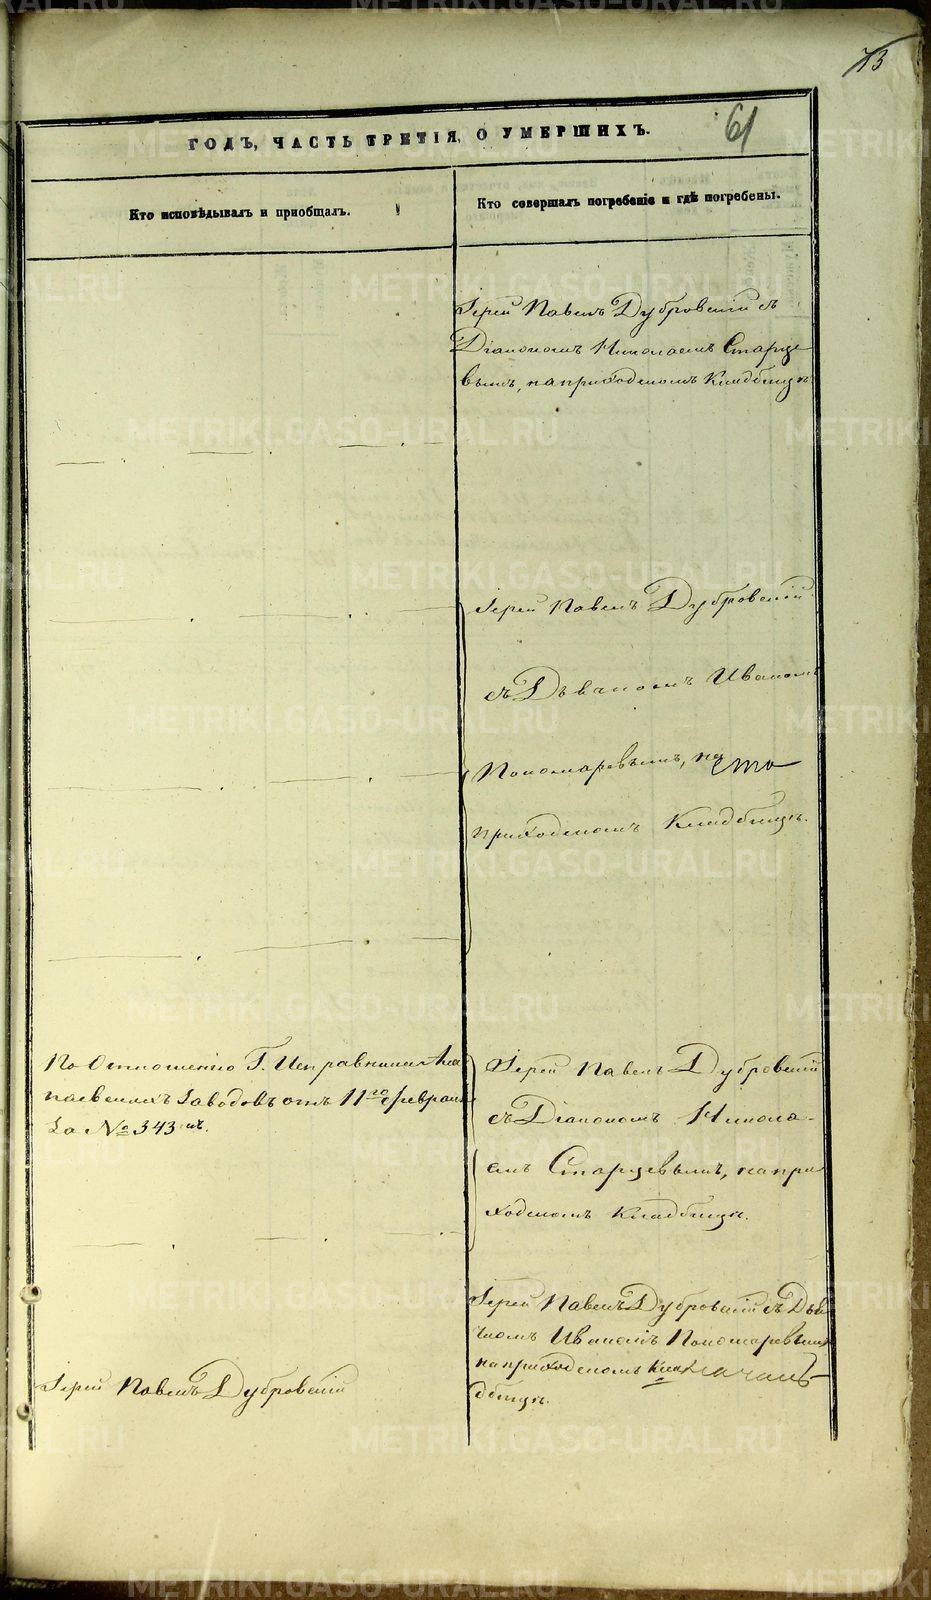 73
61
ГОДЪ, ЧАСТЬ ТРЕТІЯ, О УМЕРШИХЪ.
Кто исповѣдывалъ и пріобщалъ.
Кто совершалъ погребеніе и гдѣ погребены.
Іерей Павелъ Дубровскій съ
Діакономъ Николаемъ Старце
вымъ, на приходскомъ Кладбищѣ.
Іерей Павелъ Дубровскій
съ Дьячкомъ Иваномъ
Пономаревымъ, на
сто
приходскомъ Кладбищѣ.
По Отношенію Г. Исправника Ала
паевскихъ Заводовъ отъ 11го Февраля
За № 343мъ.
Іерей Павелъ Дубровскій
съ Діакономъ Никола-
емъ Старцевымъ, на при
ходскомъ Кладбищѣ.
Іерей Павелъ Дубровскій
Іерей Павелъ Дубровскій съ Дья
чкомъ Иваномъ Пономаревымъ
на приходскомъ Кла
дбищѣ.
METRIKI.GASO-URAL.RU